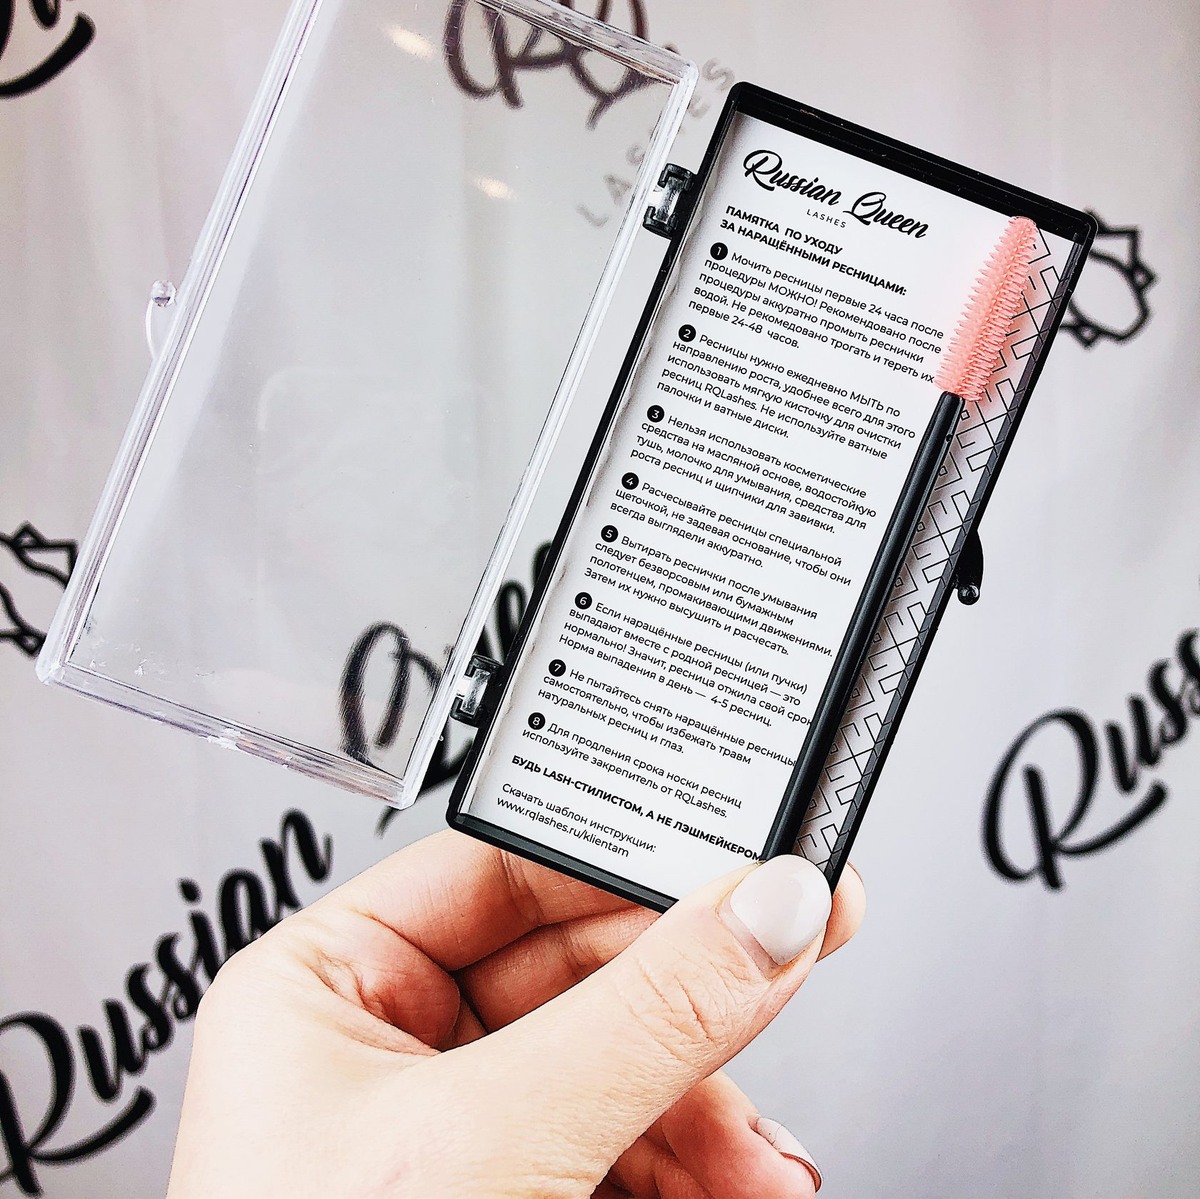 Russian Queen
LASHES
ПАМЯТКА ПО УХОДУ
ЗА НАРАЩЁННЫМИ РЕСНИЦАМИ:
1 Мочить ресницы первые 24 часа после
процедуры МОЖНО! Рекомендовано после
процедуры аккуратно промыть реснички
водой. Не рекомедовано трогать и тереть их
первые 24-48 часов.
2 Ресницы нужно ежедневно МЫТЬ по
направлению роста, удобнее всего для этого
использовать мягкую кисточку для очистки
ресниц RQLashes. Не используйте ватные
палочки и ватные диски.
3 Нельзя использовать косметические
средства на масляной основе, водостойкую
тушь, молочко для умывания, средства для
роста ресниц и щипчики для завивки.
4 Расчесывайте ресницы специальной
щеточкой, не задевая основание, чтобы они
всегда выглядели аккуратно.
5 Вытирать реснички после умывания
следует безворсовым или бумажным
полотенцем, промакивающими движениями.
Затем их нужно высушить и расчесать.
6 Если наращённые ресницы (или пучки)
выпадают вместе с родной ресницей — это
нормально! Значит, ресница отжила свой срок
Норма выпадения в день — 4-5 ресниц.
7 Не пытайтесь снять наращённые ресницы
самостоятельно, чтобы избежать травм
натуральных ресниц и глаз.
8 Для продления срока носки ресниц
используйте закрепитель от RQLashes.
БУДЬ LASH-СТИЛИСТОМ, А НЕ ЛЭШМЕЙКЕРОМ
Скачать шаблон инструкции:
www.rqlashes.ru/klientam
RQ
LASHES
Russian Queen
Russ